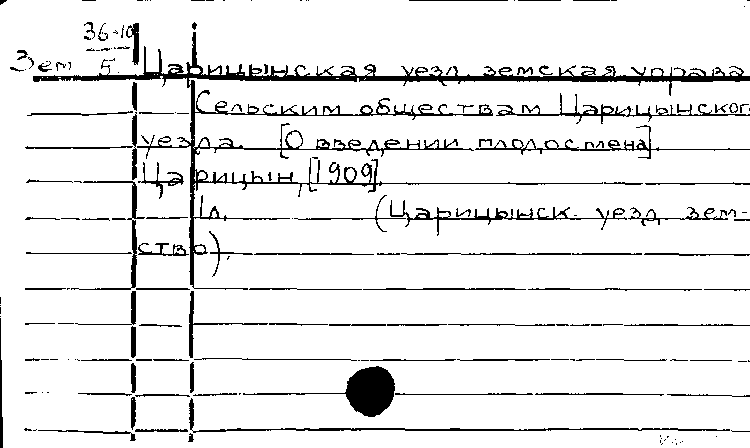 36-10
Зем 5 Царицынская уезд. земская управа
Сельским обществам Царицынского
уезда. [О введении плодосмена].
Царицын, [1909].
1л. (Царицынск. уезд. зем-
ство).